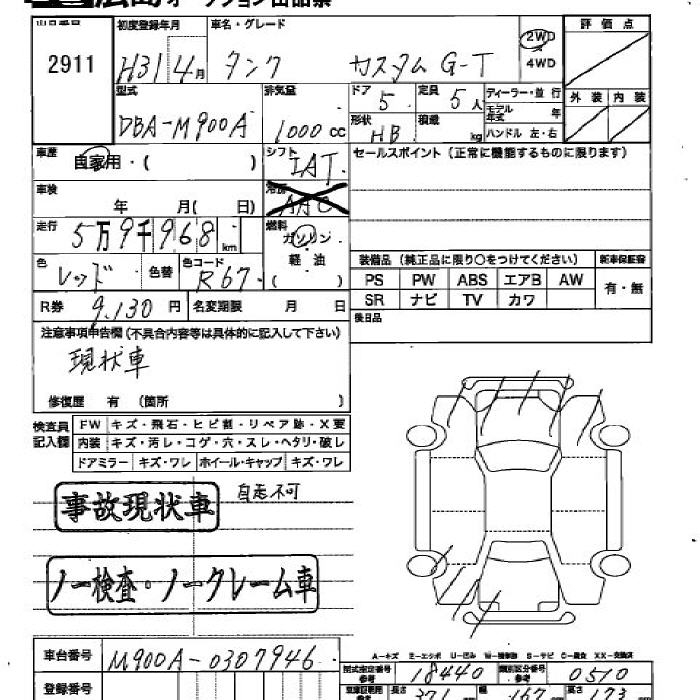 オークション出品票
出品番号 初度登録年月 車名・グレード 2WD 評価点
2911 H31 4月 タンク カスタム G-T 4WD
型式 排気量 ドア 定員 ディーラー・並行 外装 内装
DBA-M900A 1000cc 5 5人 モデル年式 年
形状 積載 ハンドル 左・右
HB kg
車歴 自家用・( ) シフト IAT セールスポイント(正常に機能するものに限ります)
車検 年 月( 日) 冷房 AAC
走行 5万9千968km 燃料 ガソリン
色 レッド 色替 色コード R67 軽油 ( )
装備品(純正品に限り○をつけてください) 新車保証書
PS PW ABS エアB AW 有・無
SR ナビ TV カワ
R券 9,130円 名変期限 月 日 後日品
注意事項申告欄(不具合内容等は具体的に記入して下さい)
現状車
修復歴 有 (箇所 )
検査員記入欄 FW キズ・飛石・ヒビ割・リペア跡・X要
内装 キズ・汚レ・コゲ・穴・スレ・ヘタリ・破レ
ドアミラー キズ・ワレ ホイール・キャップ キズ・ワレ
事故現状車 自走不可
ノー検査・ノークレーム車
車台番号 M900A-0307946
A-キズ E-エクボ U-凹ミ W-補修跡 S-サビ C-腐食 XX-交換済
型式指定番号 参考 18440 類別区分番号 参考 0510
登録番号 長さ 371 幅 167 高さ 173